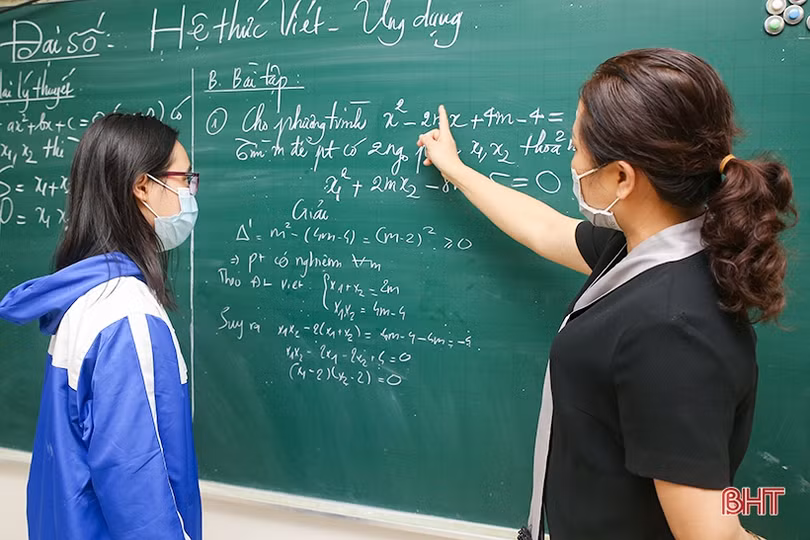 Đại số. Hệ thức Viét - Ứng dụng
lý thuyết
ax² + bx + c =
x₁, x₂ thì
= x₁ + x
P = x₁ x
B. Bài tập:
① Cho phương trình x² - 2mx + 4m - 4 =
Tìm m để pt có 2 ng x₁, x₂ thoả
x₁² + 2mx₂ - = 0
Giải
Δ' = m² - (4m-4) = (m-2)² ≥ 0
⇒ pt có nghiệm ∀m
Theo ĐL Viét { x₁ + x₂ = 2m
x₁x₂ = 4m - 4
Suy ra x₁x₂ - 2(x₁+x₂) = 4m - 4 - 4m = -4
x₁x₂ - 2x₁ - 2x₂ + 4 = 0
(x₁-2)(x₂-2) = 0
BHT